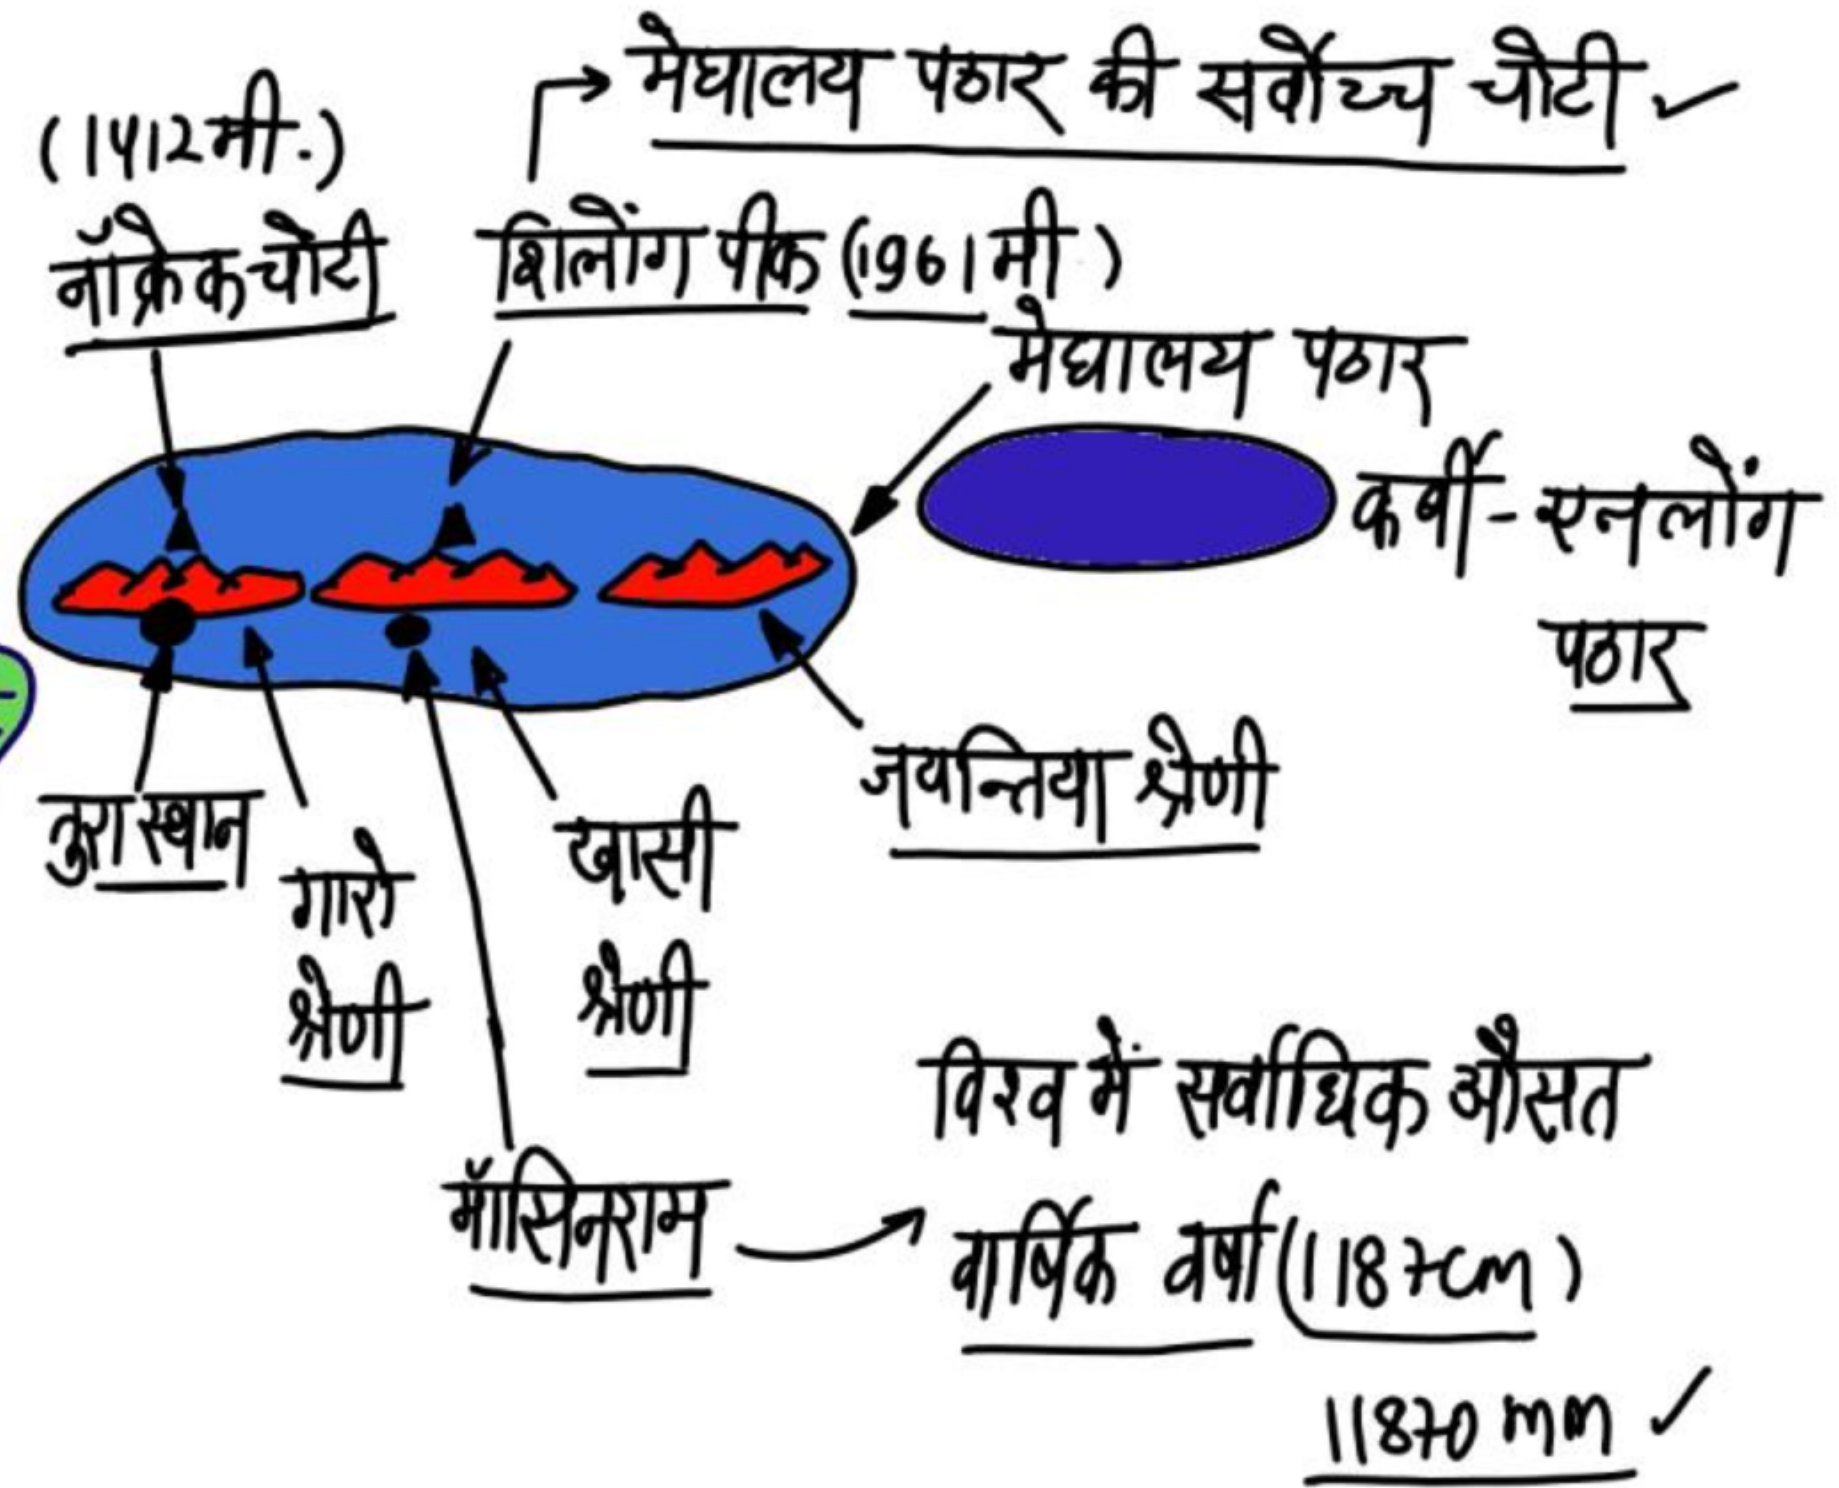 मेघालय पठार की सर्वोच्च चोटी
(1412मी.)
नॉक्रेक चोटी
शिलोंग पीक (1961मी.)
मेघालय पठार
कर्बी-एनलोंग
पठार
जयन्तिया श्रेणी
तुरा स्थान
गारो
श्रेणी
खासी
श्रेणी
मॉसिनराम
विश्व में सर्वाधिक औसत
वार्षिक वर्षा (1187cm)
11870 mm